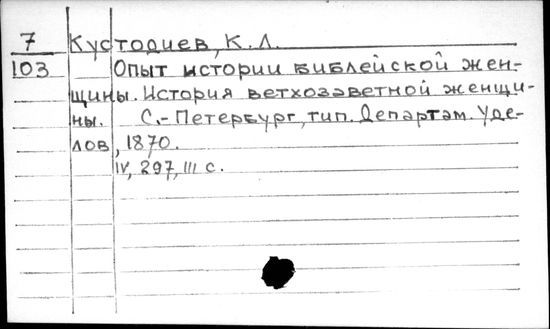 7 Кустодиев, К. Л.
103 Опыт истории библейской жен-
щины. История ветхозаветной женщи-
ны. С.-Петербург, тип. Департам. Уде-
лов, 1870.
IV, 297, III с.